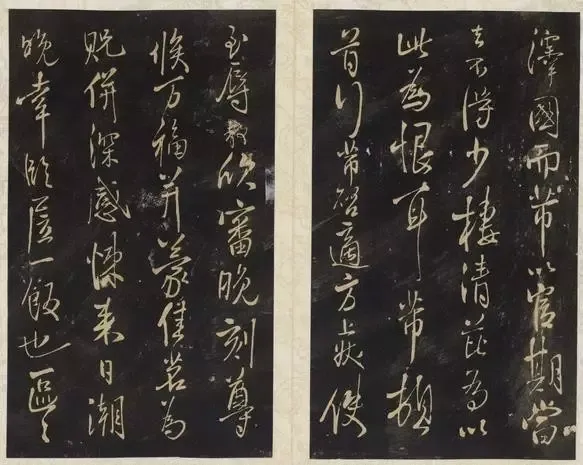 澤國而芾以官期當
去不得少棲清芘為以
此為恨耳芾頓
首芾啓適方上狀使
至辱教欣審晚刻尊
候万福并蒙佳茗為
貺併深感悚来日潮
晚幸臨一飯也區〻